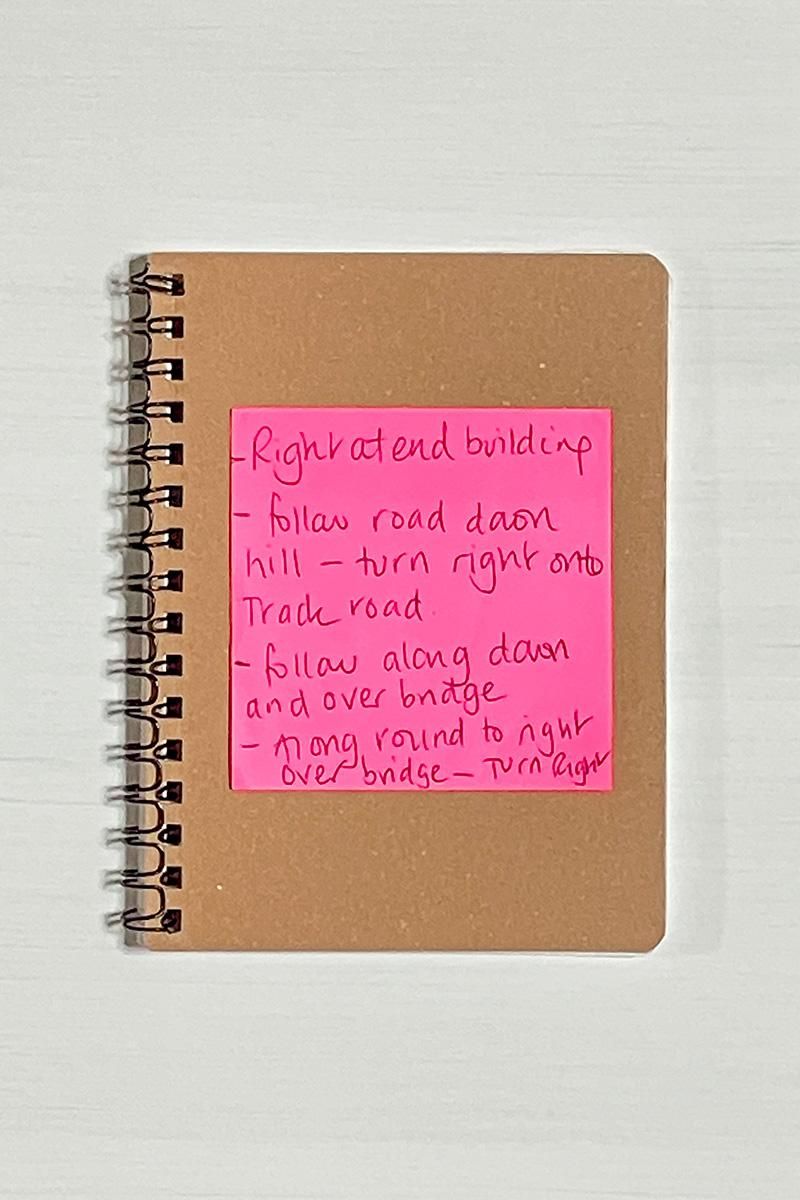 - Right at end building
- follow road down
hill - turn right onto
Track road
- follow along down
and over bridge
- Along round to right
over bridge - Turn Right